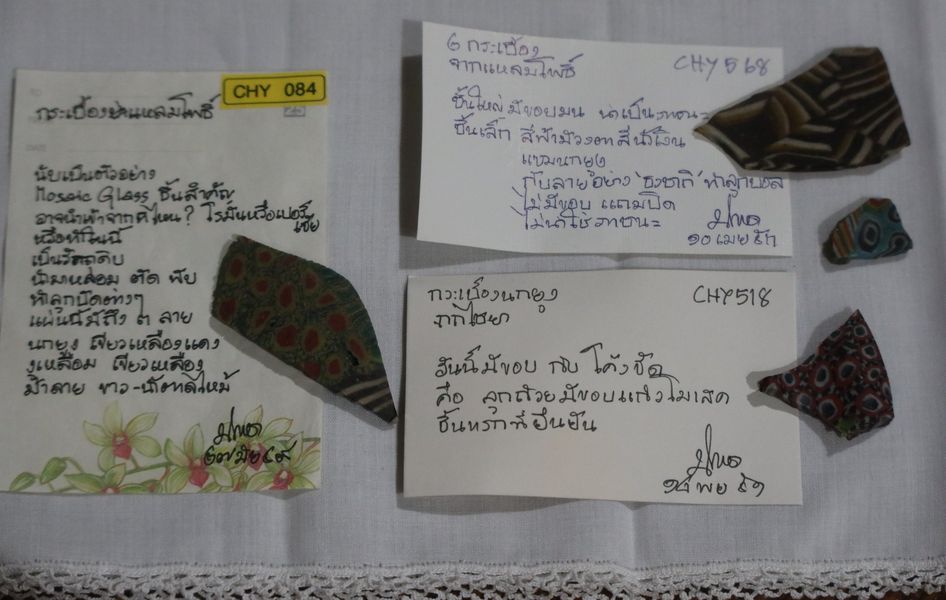 CHY 084
กระเบื้องย่านแหลมโพธิ์
นับเป็นตัวอย่าง
Mosaic Glass ชิ้นสำคัญ
อาจนำเข้าจากที่ไหน? โรมันหรือเปอร์เซีย
หรือทำในนี้
เป็นวัตถุดิบ
นำมาหลอม ตัด พับ
ทำลูกปัดต่างๆ
แผ่นนี้มีถึง ๓ ลาย
นกยูง เขียวเหลืองแดง
งูเหลือม เขียวเหลือง
ม้าลาย ขาว-น้ำตาลไหม้
๒๗ มิย ๔๙
๒ กระเบื้อง
จากแหลมโพธิ์
CHY 568
ชิ้นใหญ่ มีขอบมน น่าเป็นภาชนะ
ชิ้นเล็ก สีฟ้ามีวงตาสีน้ำเงิน
แบบนกยูง
กับลายอย่าง 'ธงชาติ' ทำลูกบอล
ไม่มีขอบ แถมบิด
ไม่น่าใช่ภาชนะ
๑๐ เมย
กระเบื้องนกยูง
CHY 518
จากไชยา
อันนี้ มีขอบ กับ โค้งชัด
คือ ลูกถ้วยมีขอบแก้วโมเสค
ชิ้นแรกที่ยืนยัน
พย ๕๑